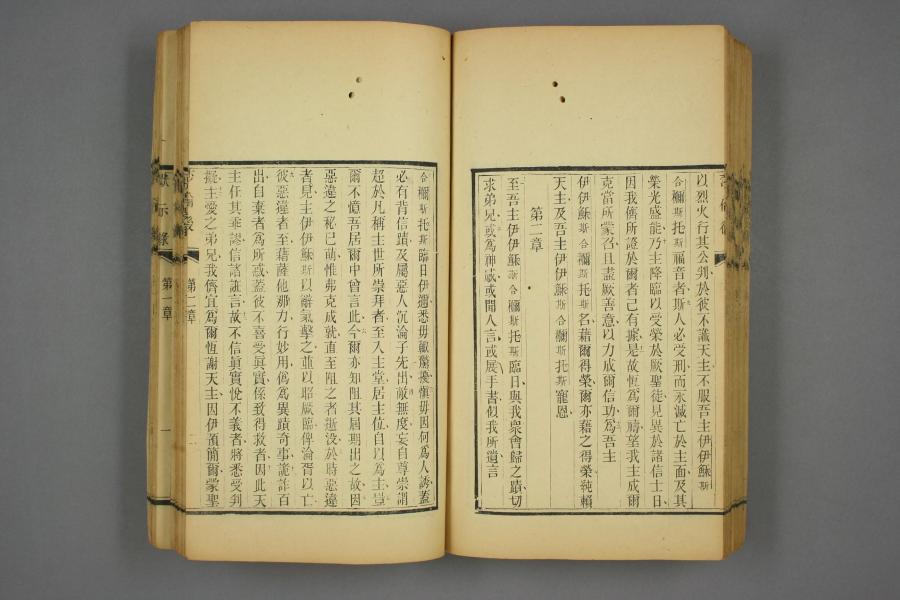 以烈火行其公判於彼不識天主不服吾主伊伊穌斯
合穪斯托斯福音者斯人必受刑而永滅亡於主面及其
榮光盛能乃主降臨以受榮於厥聖徒見異於諸信士日
因我儕所證於爾者己有據是故恆爲爾禱望我主成爾
克當所蒙召且盡厥善意以力成爾信功爲吾主
伊伊穌斯合穪斯托斯名藉爾得榮爾亦藉之得榮純賴
天主及吾主伊伊穌斯合穪斯托斯寵恩
第二章
至吾主伊伊穌斯合穪斯托斯臨日與我衆會歸之蹟切
求弟兄或爲神或或聞人言或展手書似我所遺言
合穪斯托斯臨日伊邇悉毋輙驚擾愼毋因何爲人誘蓋
必有背信蹟及屬惡人沉淪子先出敵無度妄自尊崇謂
超於凡稱主世所崇拜者至入主堂居主位自以爲主豈
爾不憶吾居爾中曾言此今爾亦知阻其屆期出之故因
惡違之秘已萌惟弗克成就直至阻之者逝没於時惡違
者見主伊伊穌斯以辭氣擊之並以昭厥臨俾淪胥以亡
彼惡違者至藉薩他那力行妙用僞爲異蹟奇事詭詐百
出自棄者爲所惑蓋彼不喜受眞實係致得救者因此天
主任其乖謬信諸誑言故不信眞實悅不義者將悉受判
擬主愛之弟兄我儕宜爲爾恆謝天主因伊預簡爾蒙聖
第二章
默示錄
第一章
一